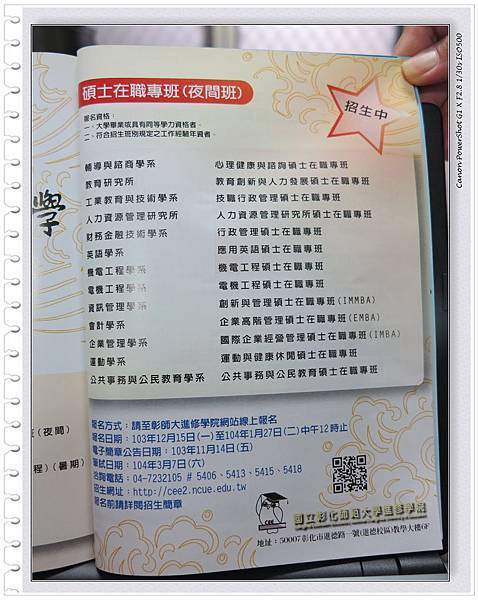 碩士在職專班(夜間班)
招生中
報名資格：
一、大學畢業或具有同等學力資格者。
二、符合招生班別規定之工作經驗年資者。
輔導與諮商學系 心理健康與諮詢碩士在職專班
教育研究所 教育創新與人力發展碩士在職專班
工業教育與技術學系 技職行政管理碩士在職專班
人力資源管理研究所 人力資源管理研究所碩士在職專班
財務金融技術學系 行政管理碩士在職專班
英語學系 應用英語碩士在職專班
機電工程學系 機電工程碩士在職專班
電機工程學系 電機工程碩士在職專班
資訊管理學系 創新與管理碩士在職專班(IMMBA)
會計學系 企業高階管理碩士在職專班(EMBA)
企業管理學系 國際企業經營管理碩士在職專班(IMBA)
運動學系 運動與健康休閒碩士在職專班
公共事務與公民教育學系 公共事務與公民教育碩士在職專班
學
(夜間)
程)(暑期)
報名方式：請至彰師大進修學院網站線上報名
報名日期：103年12月15日(一)至104年1月27日(二)中午12時止
電子簡章公告日期：103年11月14日(五)
筆試日期：104年3月7日(六)
洽詢電話：04-7232105 # 5406、5413、5415、5418
招生網址：http://cee2.ncue.edu.tw
報名前請詳閱招生簡章
CEE
國立彰化師範大學進修學院
地址：50007彰化市進德路一號(進德校區)教學大樓6F
Canon PowerShot G1 X F2.8 1/30s ISO500